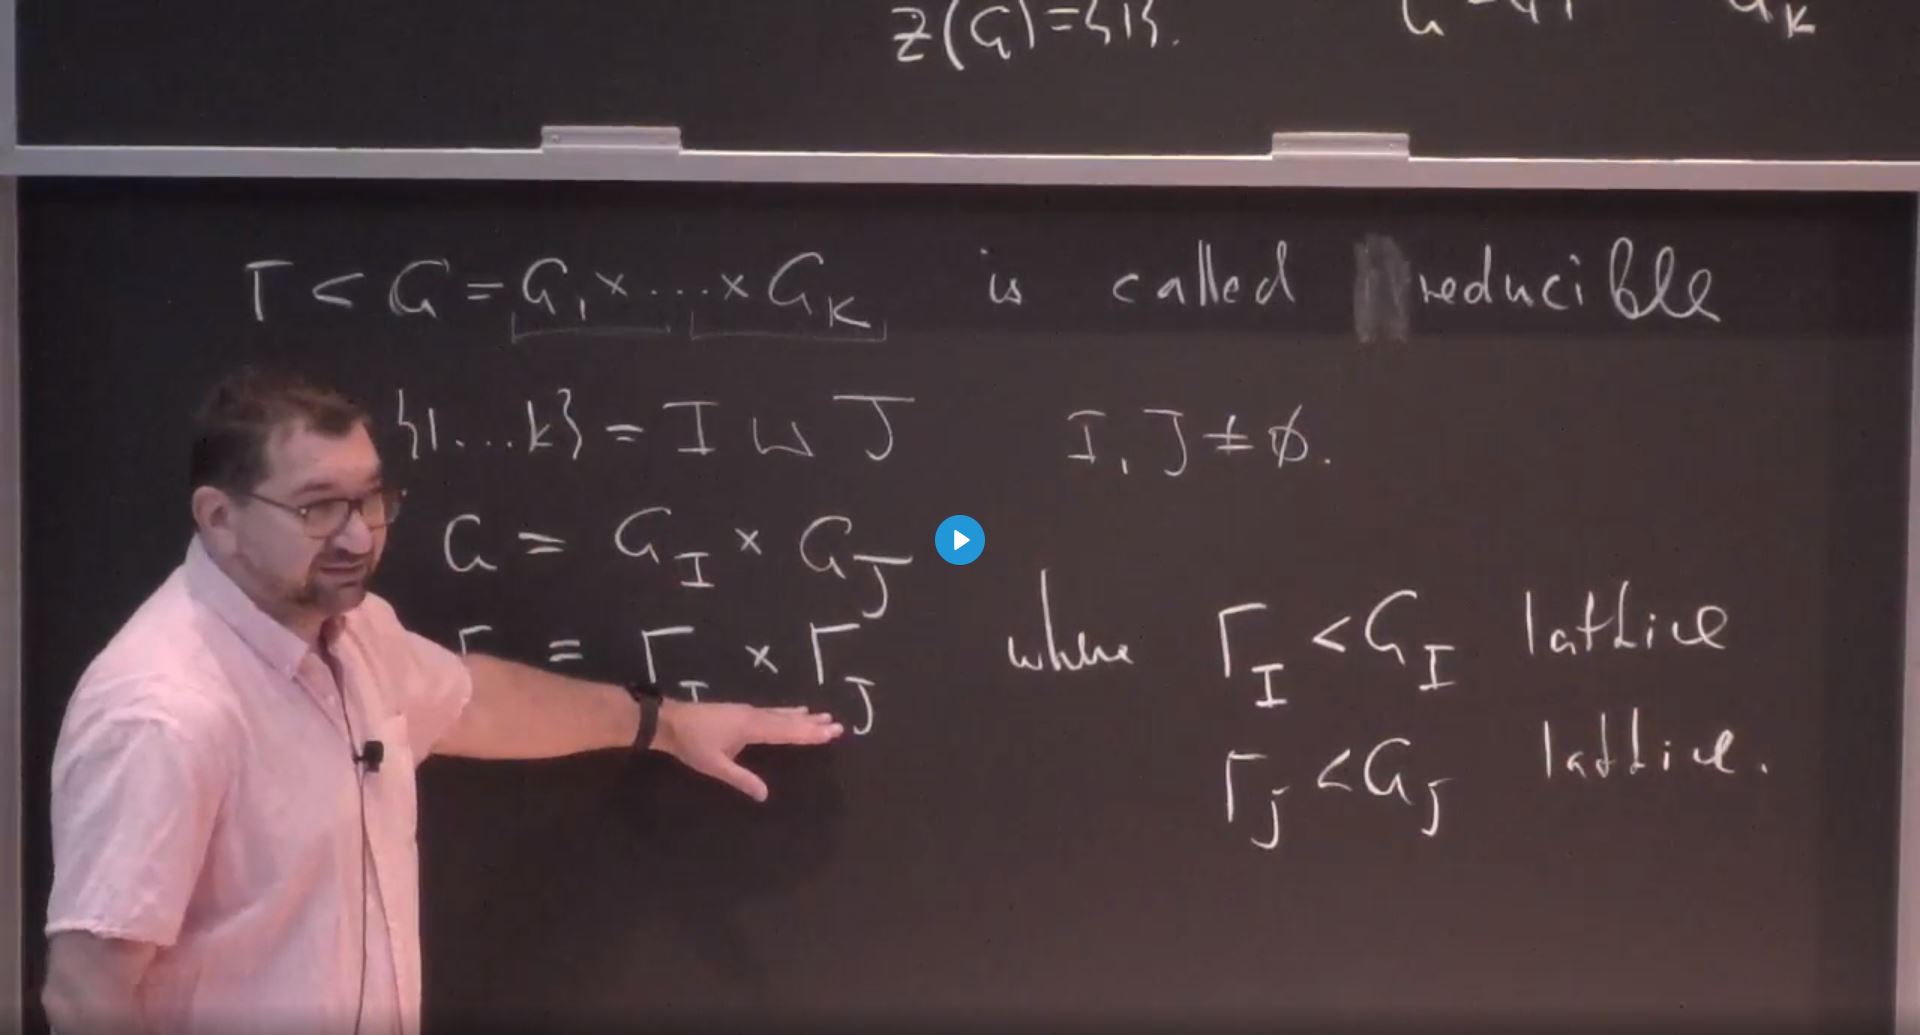 Z(G)={1}.
Γ < G = G₁ × ... × G_K is called reducible
{1...k} = I ⊔ J I, J ≠ ∅.
G = G_I × G_J
Γ = Γ_I × Γ_J where Γ_I < G_I lattice
Γ_J < G_J lattice.